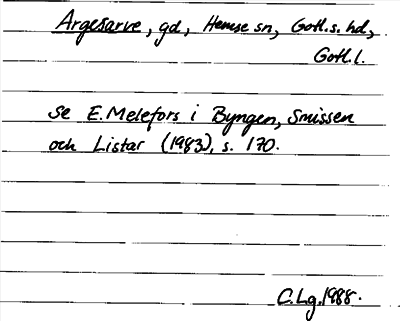 Argesarve, gd, Hemse sn, Gotl. s. hd,
Gotl. l.
se E. Melefors i Byngen, Smissen
och Listar (1983), s. 170.
C. Lg. 1988.